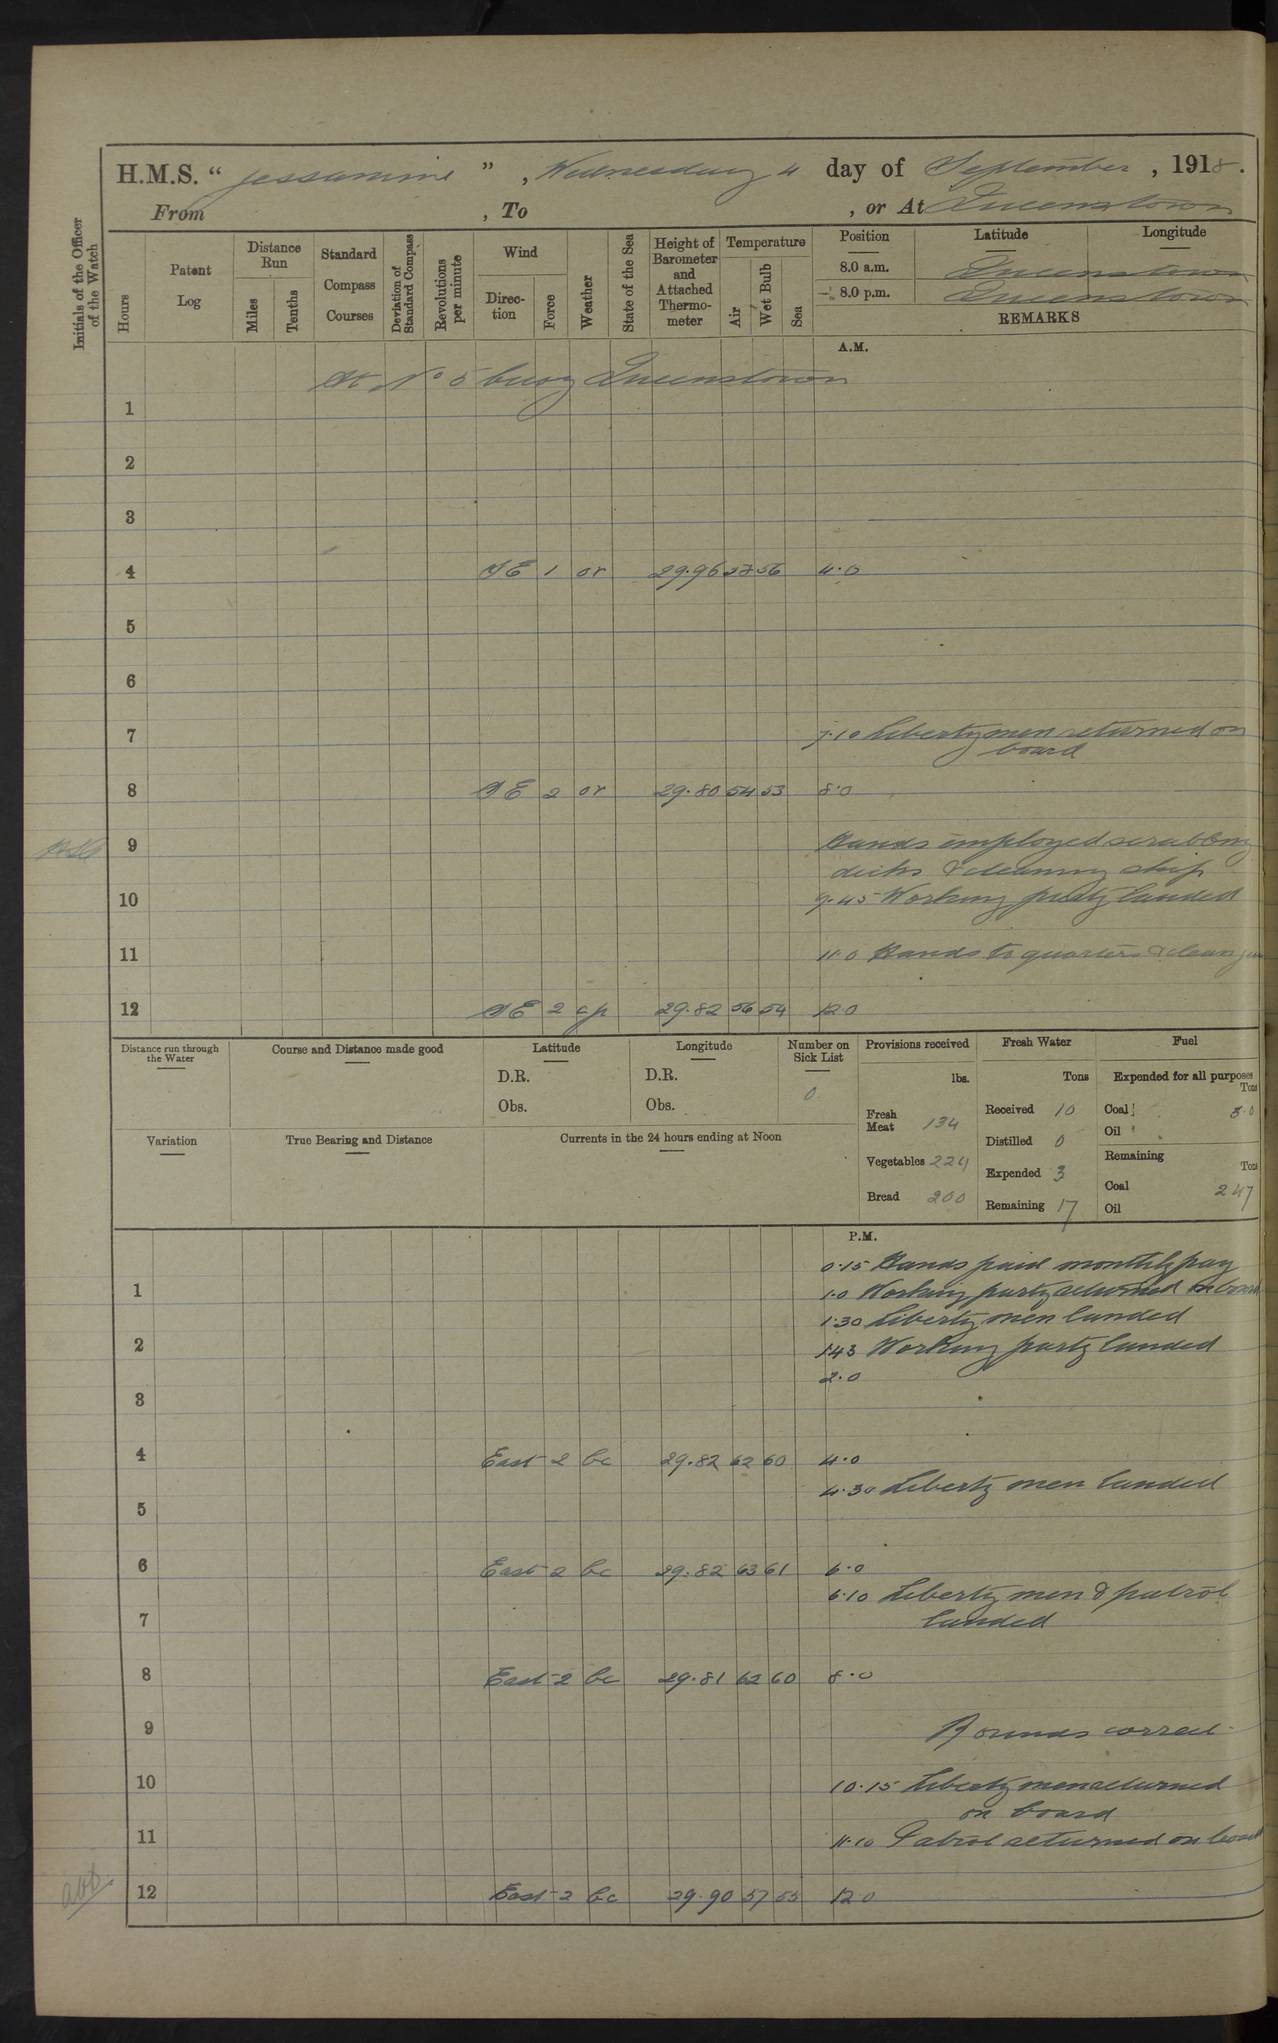 H.M.S. “ Jessamine ” , Wednesday 4 day of September , 1918.
From , To , or At Queenstown
Initials of the Officer of the Watch
Hours
Patent Log
Distance Run
Miles
Tenths
Standard Compass Courses
Deviation of Standard Compass
Revolutions per minute
Wind
Direc-tion
Force
Weather
State of the Sea
Height of Barometer and Attached Thermo-meter
Temperature
Air
Wet Bulb
Sea
Position Latitude Longitude
8.0 a.m. Queenstown
8.0 p.m. Queenstown
REMARKS
A.M.
At No 5 buoy Queenstown
1
2
3
4 SE 1 or 29.96 56 4.0
5
6
7 7.10 Liberty men returned on
board
8 SE 2 or 29.80 54 53 8.0
9 Hands employed scrubbing
decks & cleaning ship
10 9.45 Working party landed
11 11.0 Hands to quarters & clean
12 SE 2 cp 29.82 56 54 12.0
Distance run through the Water
Course and Distance made good
Latitude
D.R.
Obs.
Longitude
D.R.
Obs.
Number on Sick List
0
Variation
True Bearing and Distance
Currents in the 24 hours ending at Noon
Provisions received
lbs.
Fresh Meat 134
Vegetables 224
Bread 200
Fresh Water
Tons
Received 10
Distilled 0
Expended 3
Remaining 17
Fuel
Expended for all purposes
Tons
Coal 3.0
Oil
Remaining
Tons
Coal 247
Oil
P.M.
0.15 Hands paid monthly pay
1 1.0 Working party returned on board
1.30 Liberty men landed
2 1.43 Working party landed
2.0
3
4 East 2 bc 29.82 62 60 4.0
4.30 Liberty men landed
5
6 East 2 bc 29.82 63 61 6.0
6.10 Liberty men & patrol
7 landed
8 East 2 bc 29.81 62 60 8.0
9 Rounds correct
10 10.15 Liberty men returned
on board
11 11.10 Patrol returned on board
12 East 2 bc 29.90 57 55 12.0